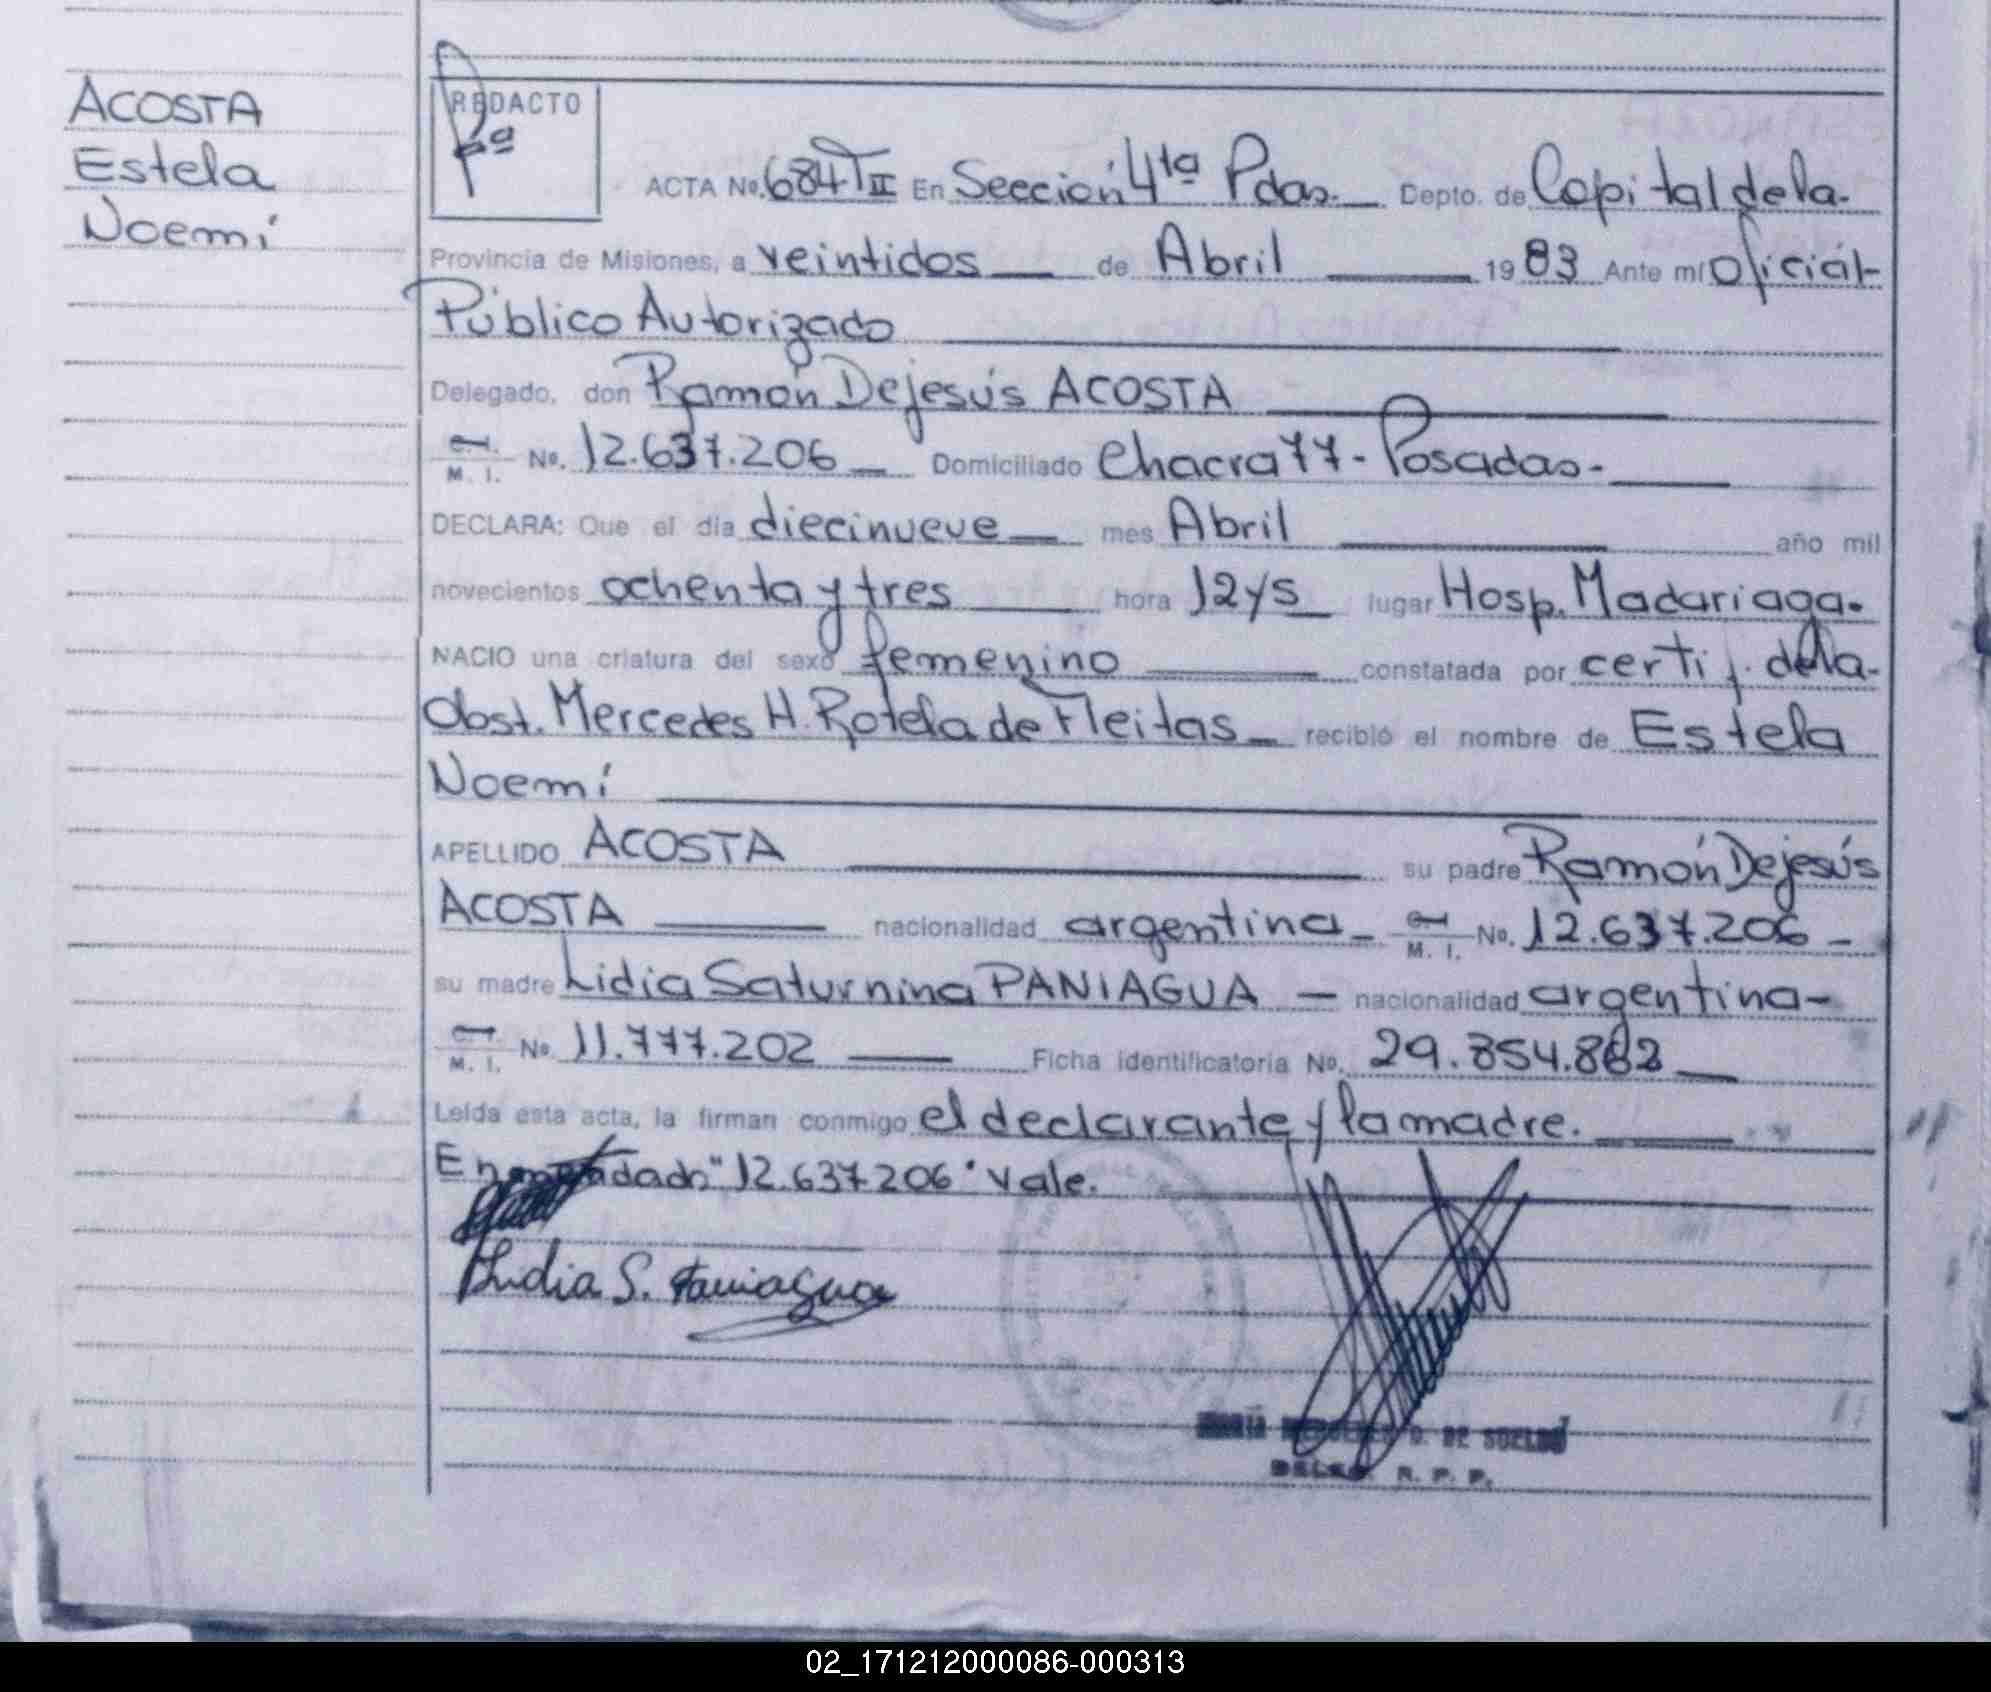 ACOSTA
Estela
Noemí
REDACTO
ACTA No. 684 TII En Sección 4ta Pdas. Depto. de Capital de la
Provincia de Misiones, a veintidos de Abril 1983 Ante mí Oficial
Público Autorizado
Delegado, don Ramón Dejesús ACOSTA
C.I. M. I. No. 12.637.206 Domiciliado Chacra 77 - Posadas -
DECLARA: Que el día diecinueve mes Abril año mil
novecientos ochenta y tres hora 12 y 5 lugar Hosp. Madariaga.
NACIO una criatura del sexo femenino constatada por certif. de la
Obst. Mercedes H. Rotela de Fleitas recibió el nombre de Estela
Noemí
APELLIDO ACOSTA su padre Ramón Dejesús
ACOSTA nacionalidad argentina C.I. M. I. No. 12.637.206
su madre Lidia Saturnina PANIAGUA nacionalidad argentina
C.I. M. I. No. 11.777.202 Ficha identificatoria No. 29.854.882
Leída esta acta, la firman conmigo el declarante y la madre.
Enmendado "12.637.206" vale.
Lidia S. Paniagua
DE SUELDO
DELEG. R. P. P.
02_171212000086-000313